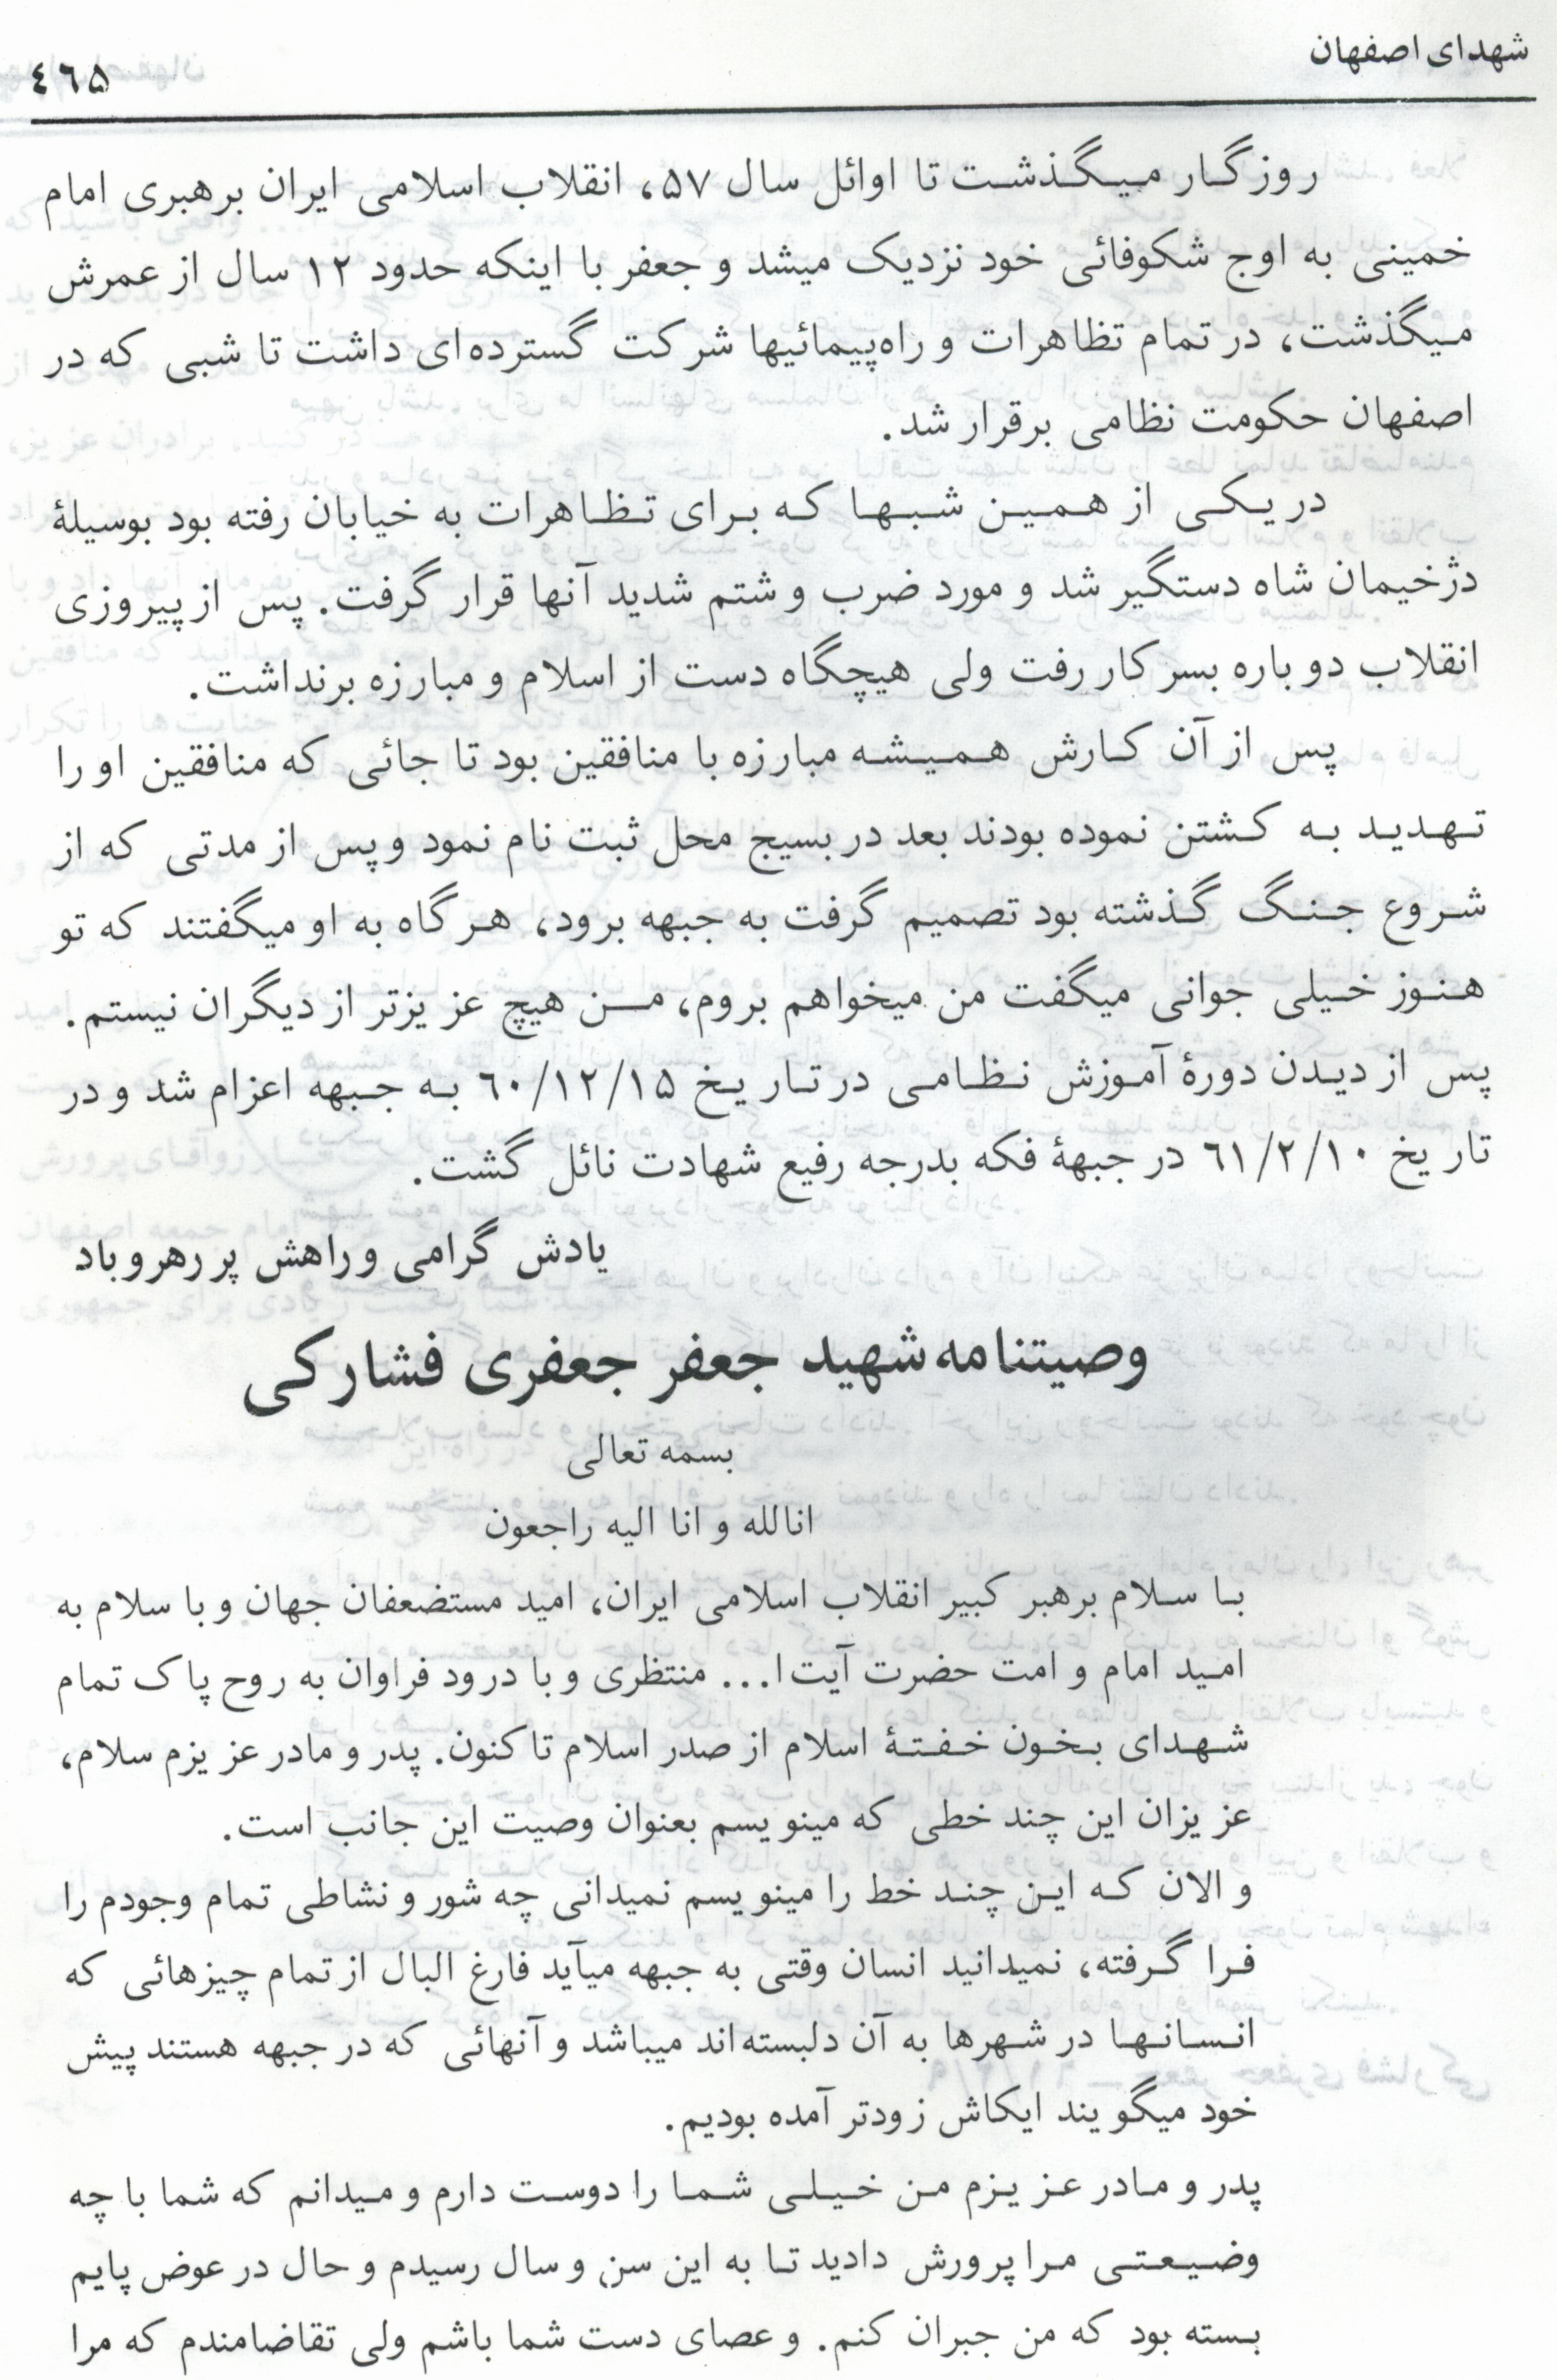 شهدای اصفهان
٤٦٥
روزگار میگذشت تا اوائل سال ۵۷، انقلاب اسلامی ایران برهبری امام
خمینی به اوج شکوفائی خود نزدیک میشد و جعفر با اینکه حدود ۱۲ سال از عمرش
میگذشت، در تمام تظاهرات و راه‌پیمائیها شرکت گسترده‌ای داشت تا شبی که در
اصفهان حکومت نظامی برقرار شد.
در یکی از همین شبها که برای تظاهرات به خیابان رفته بود بوسیلهٔ
دژخیمان شاه دستگیر شد و مورد ضرب و شتم شدید آنها قرار گرفت. پس از پیروزی
انقلاب دوباره بسر کار رفت ولی هیچگاه دست از اسلام و مبارزه برنداشت.
پس از آن کارش همیشه مبارزه با منافقین بود تا جائی که منافقین او را
تهدید به کشتن نموده بودند بعد در بسیج محل ثبت نام نمود و پس از مدتی که از
شروع جنگ گذشته بود تصمیم گرفت به جبهه برود، هرگاه به او میگفتند که تو
هنوز خیلی جوانی میگفت من میخواهم بروم، من هیچ عزیزتر از دیگران نیستم.
پس از دیدن دورهٔ آموزش نظامی در تاریخ ٦٠/١٢/١۵ به جبهه اعزام شد و در
تاریخ ٦١/٢/١٠ در جبههٔ فکه بدرجه رفیع شهادت نائل گشت.
یادش گرامی و راهش پر رهرو باد
وصیتنامه شهید جعفر جعفری فشارکی
بسمه تعالی
انالله و انا الیه راجعون
با سلام برهبر کبیر انقلاب اسلامی ایران، امید مستضعفان جهان و با سلام به
امید امام و امت حضرت آیت ا... منتظری و با درود فراوان به روح پاک تمام
شهدای بخون خفتهٔ اسلام از صدر اسلام تا کنون. پدر و مادر عزیزم سلام،
عزیزان این چند خطی که مینویسم بعنوان وصیت این جانب است.
و الان که این چند خط را مینویسم نمیدانی چه شور و نشاطی تمام وجودم را
فرا گرفته، نمیدانید انسان وقتی به جبهه میآید فارغ البال از تمام چیزهائی که
انسانها در شهرها به آن دلبسته‌اند میباشد و آنهائی که در جبهه هستند پیش
خود میگویند ایکاش زودتر آمده بودیم.
پدر و مادر عزیزم من خیلی شما را دوست دارم و میدانم که شما با چه
وضیعتی مرا پرورش دادید تا به این سن و سال رسیدم و حال در عوض پایم
بسته بود که من جبران کنم. و عصای دست شما باشم ولی تقاضامندم که مرا